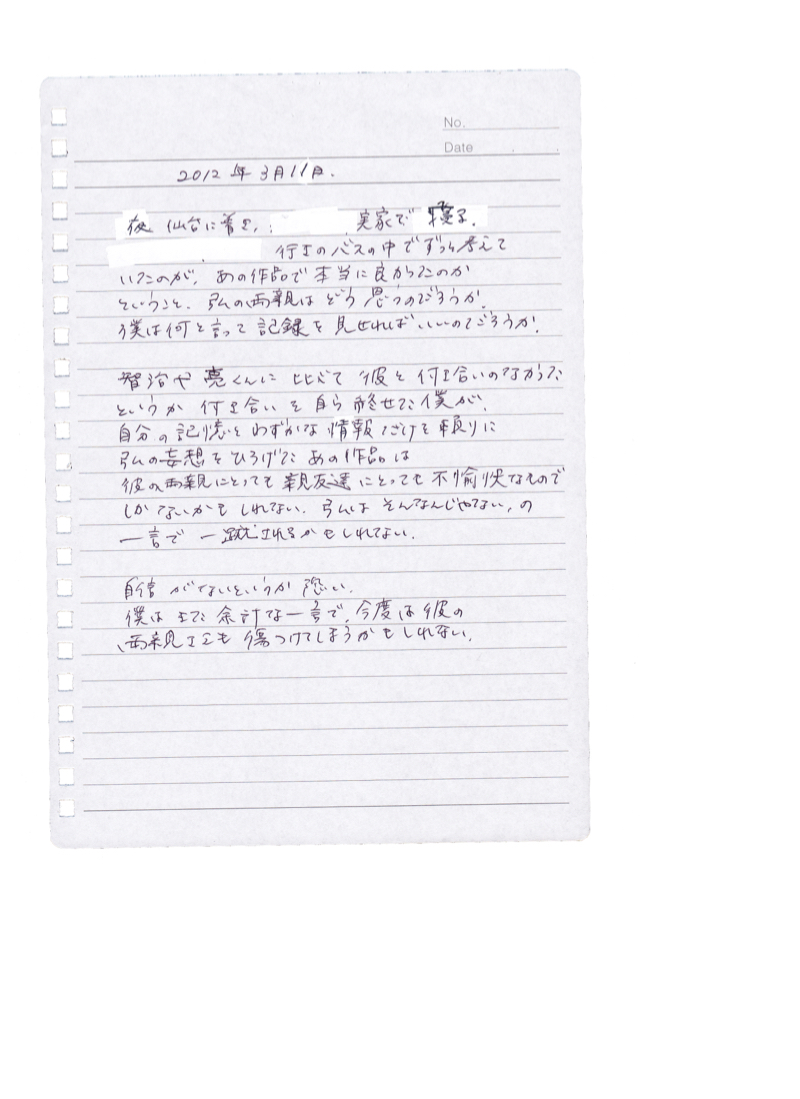 No.
Date
2012年3月11日.
夜 仙台に着き, 実家で寝る.
行きのバスの中でずっと考えて
いたのが, あの作品で本当に良かったのか
ということ. 弘の両親はどう思うのだろうか.
僕は何と言って記録を見せればいいのだろうか.
智治や亮くんに比べて 彼と付き合いのなかった
というか 付き合いを自ら
自分の記憶とわずかな情報だけを頼りに
弘の妄想をひろげた あの作品は
彼の両親にとっても親友達にとっても不愉快なもので
しかないかもしれない. 弘はそんなんじゃない, の
一言で 一蹴されるかもしれない.
自信がないというか 恐い.
僕はまた余計な一言で, 今度は彼の
両親までも傷つけてしまうかもしれない.